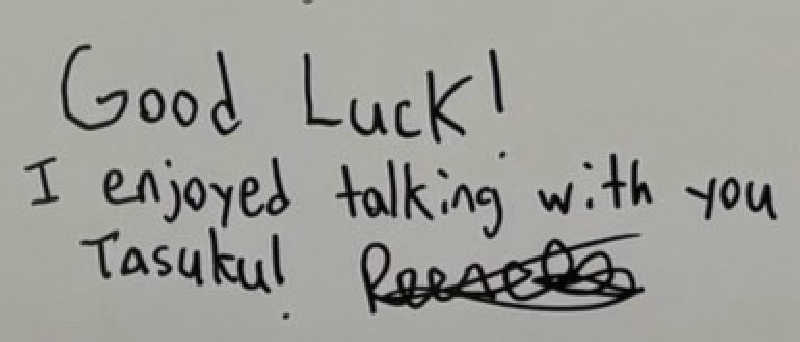 Good Luck!
I enjoyed talking with you
Tasuku!